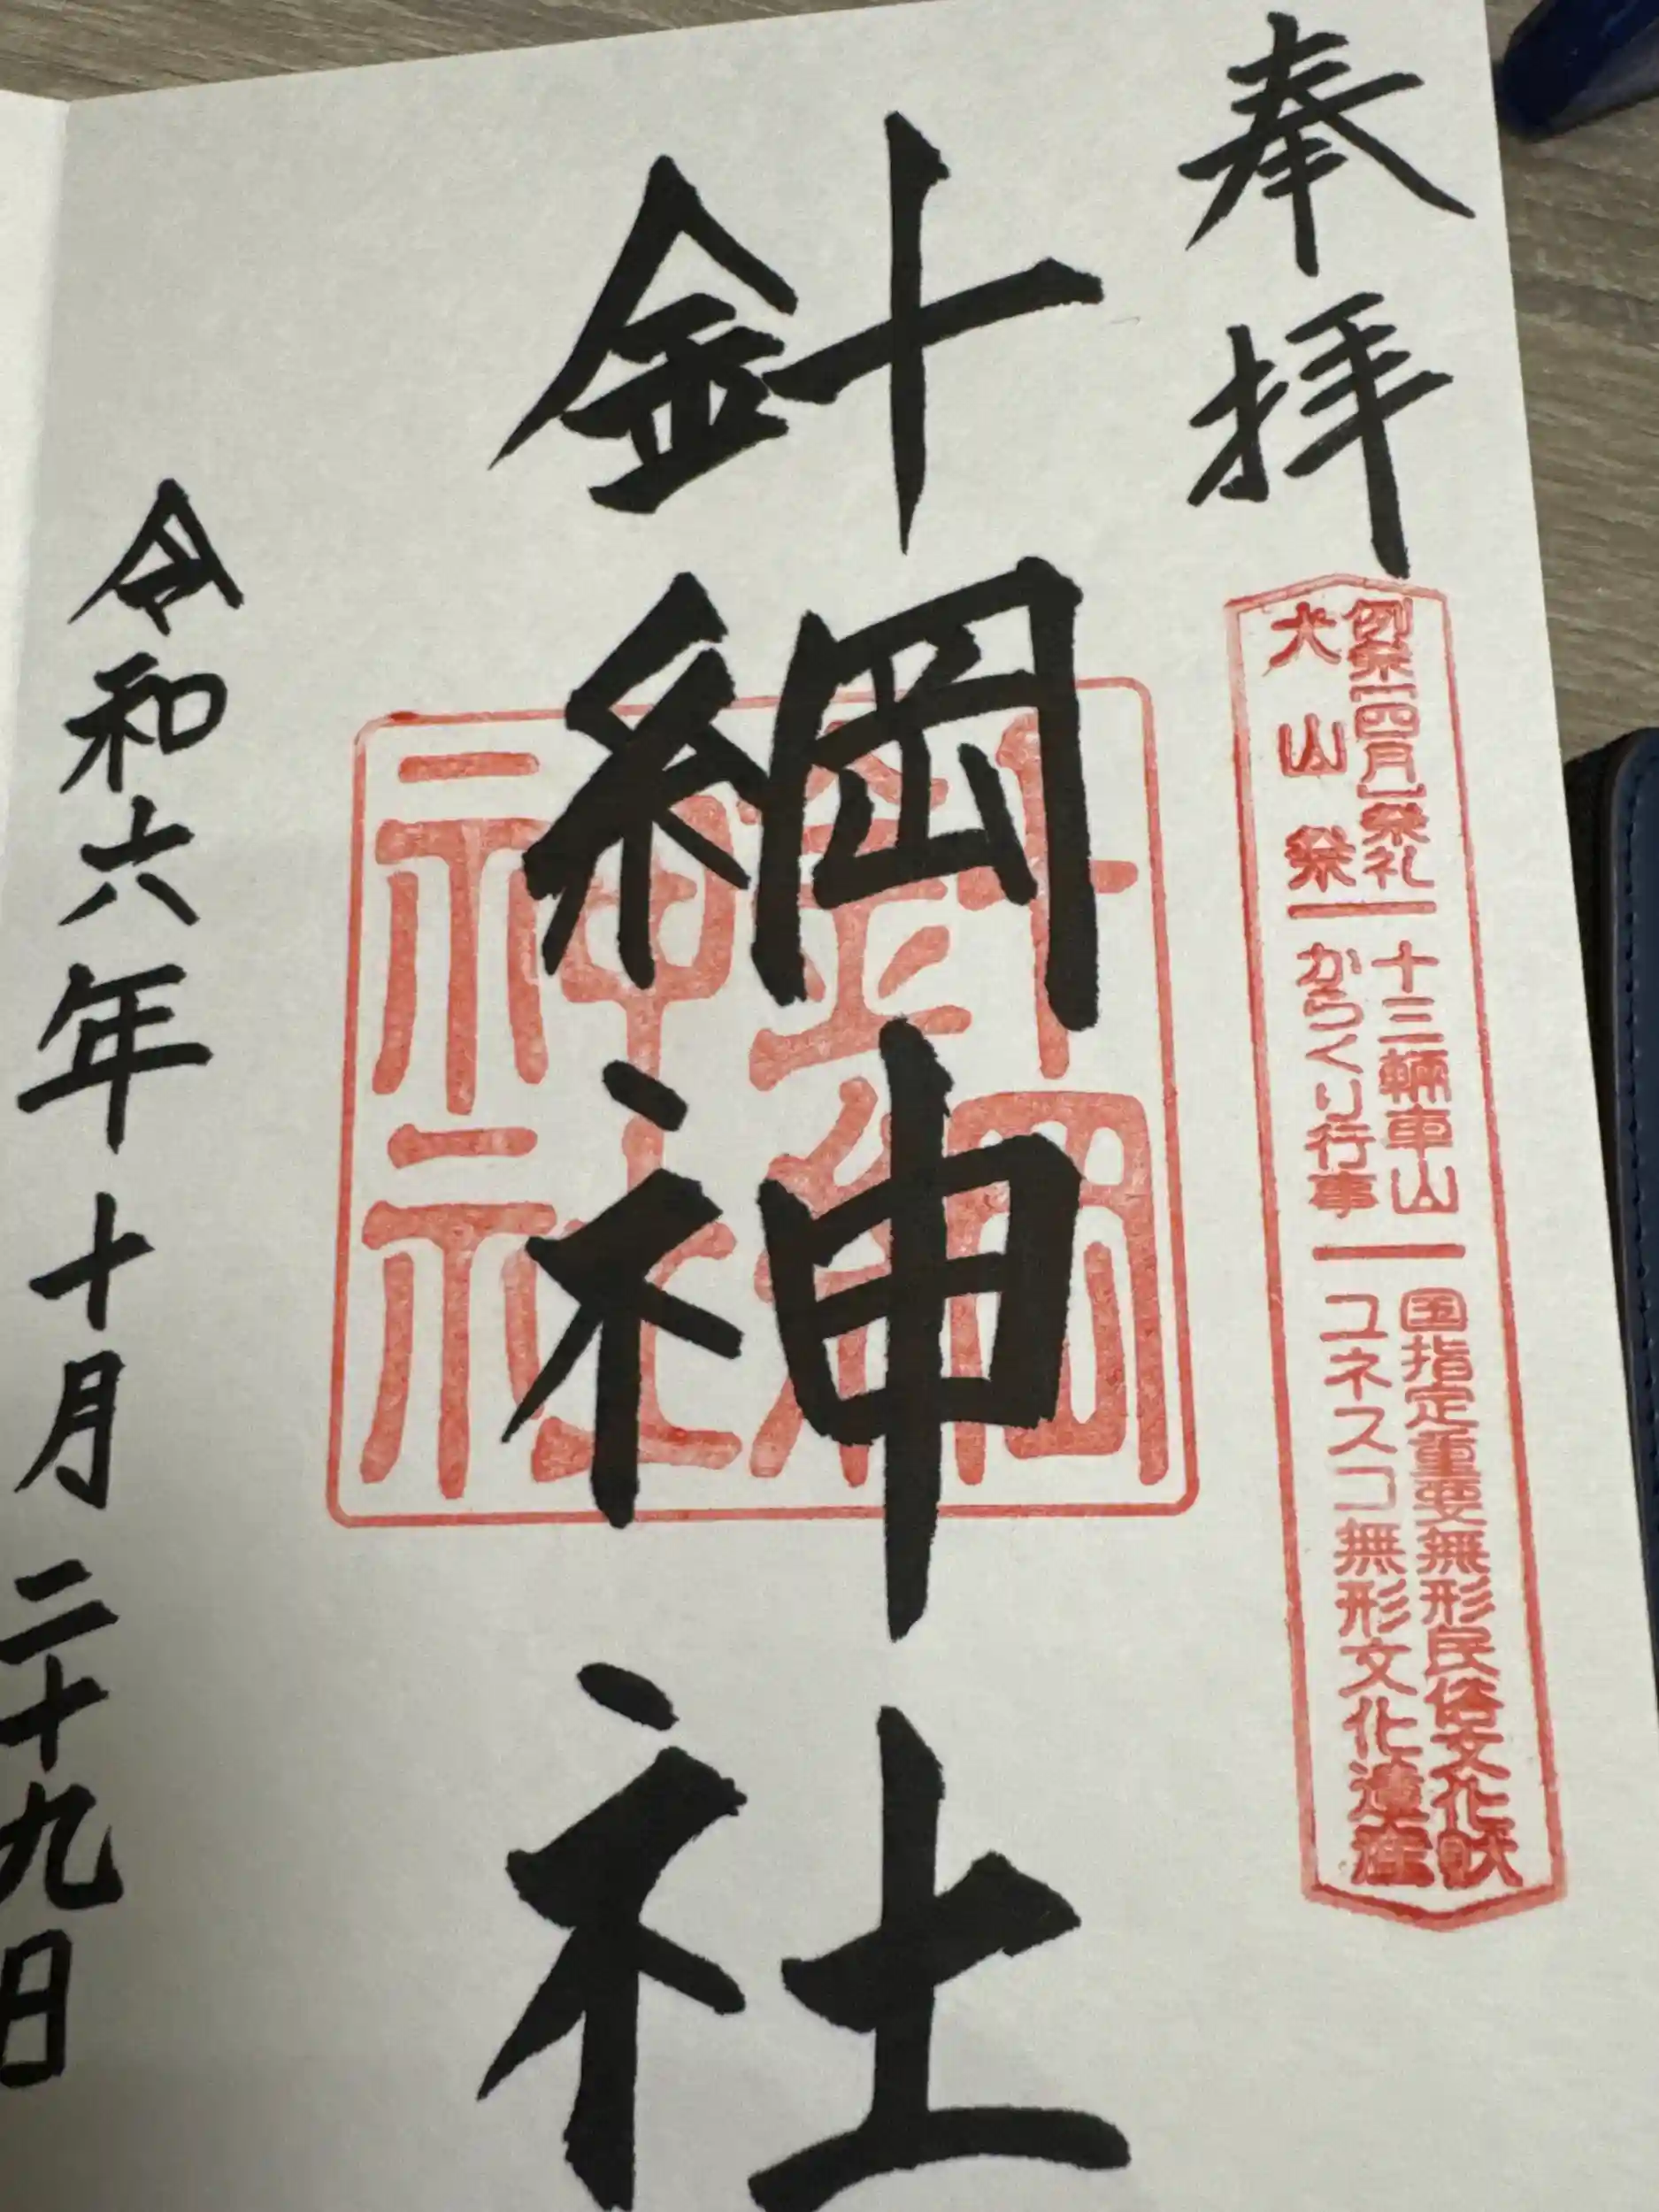 奉拝
例祭【四月】祭礼 十三輛車山 国指定重要無形民俗文化財
犬山祭 からくり行事 ユネスコ無形文化遺産
針綱神社
針綱
神社
令和六年十月二十九日